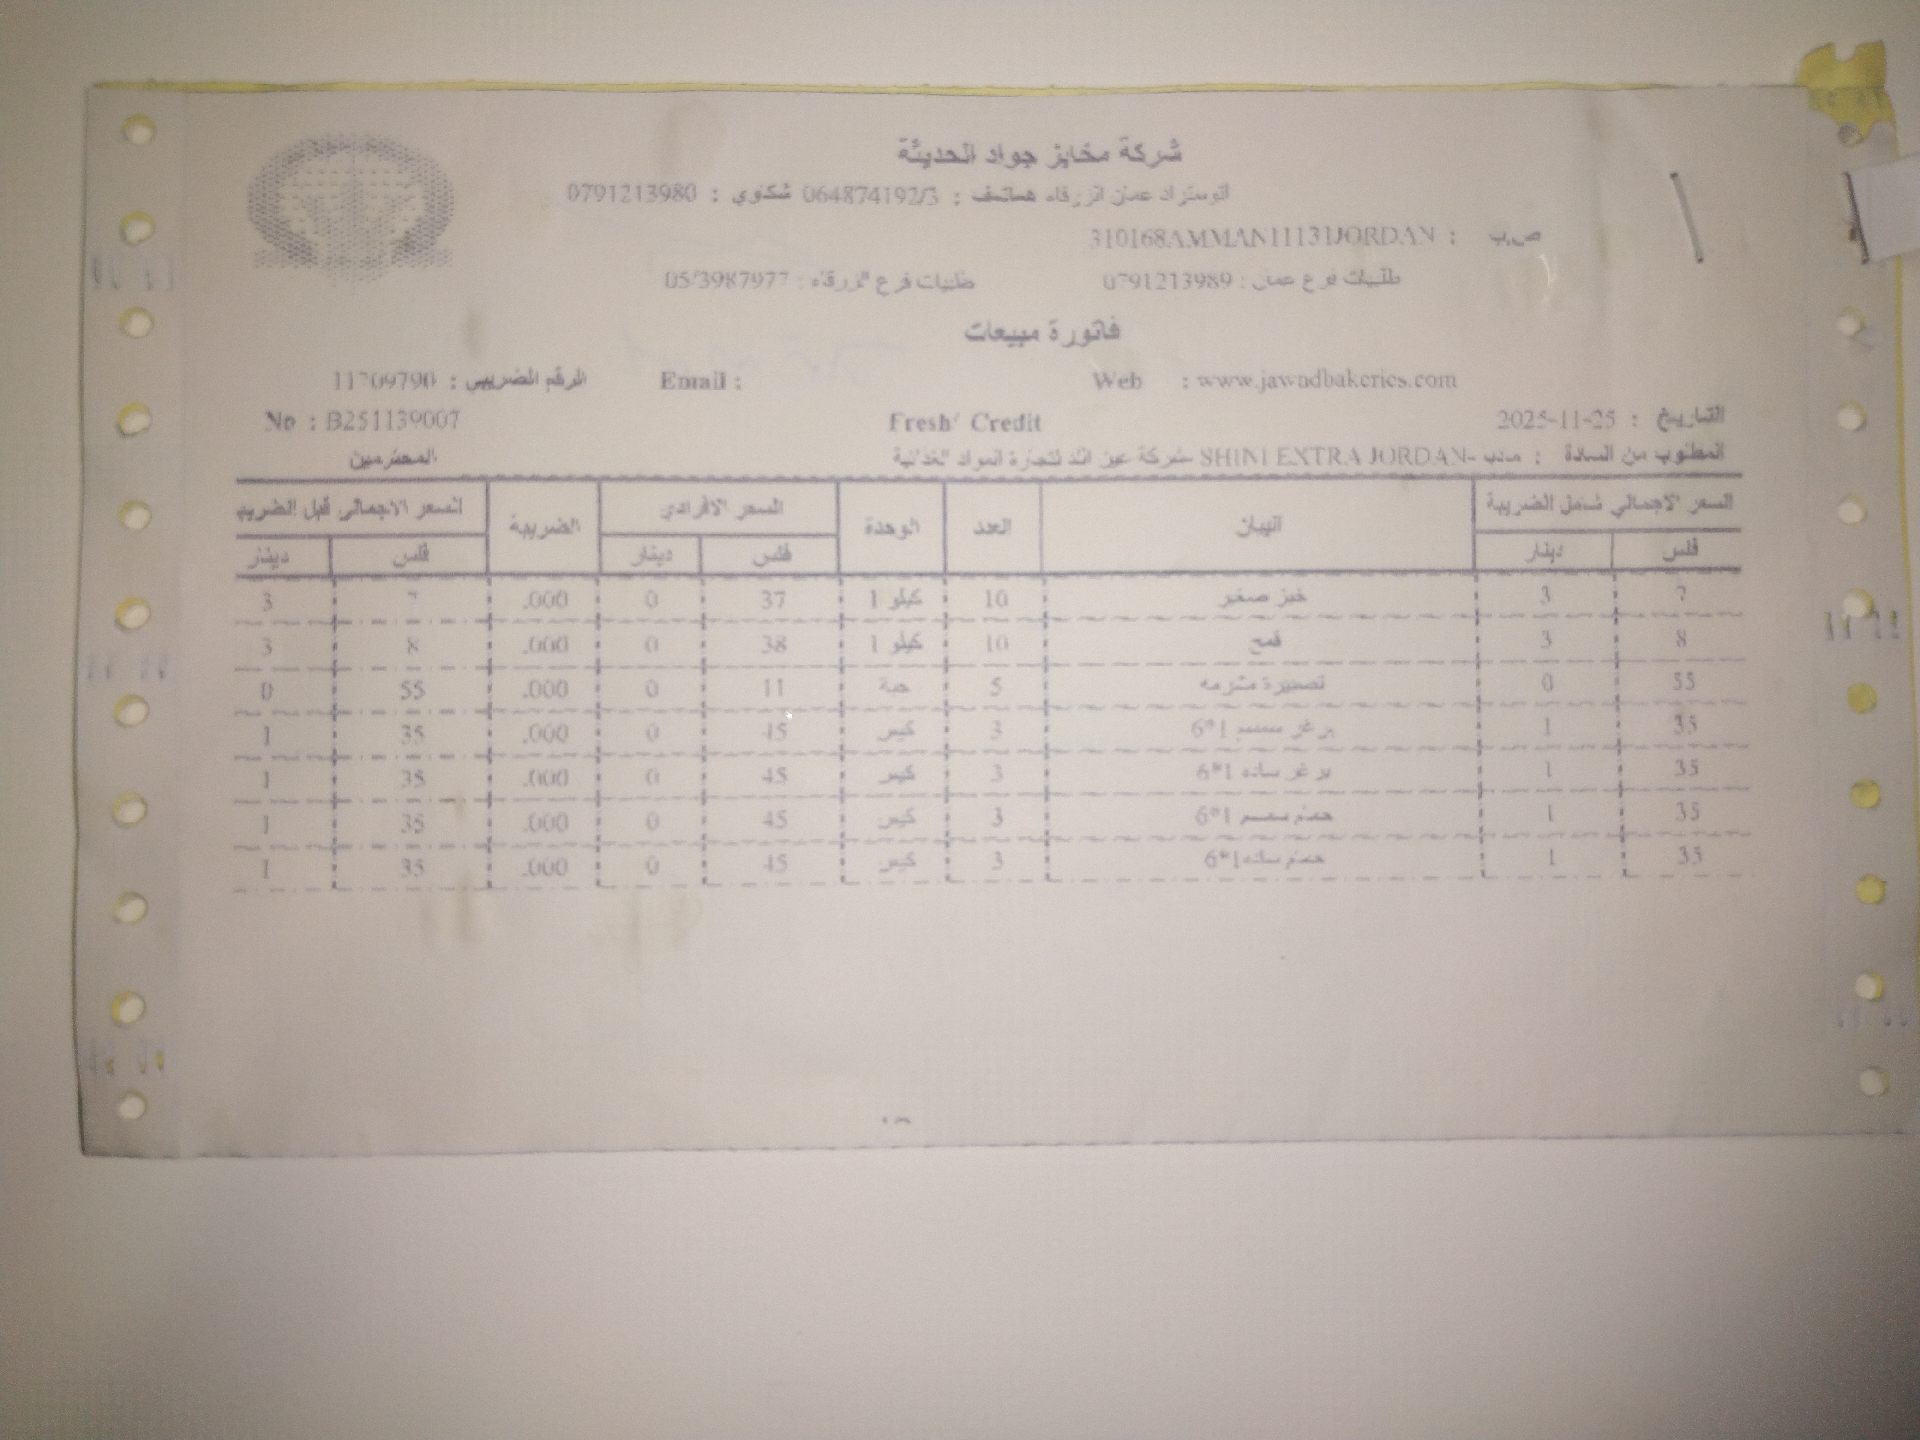 شركة مخابز جواد الحديثة
اتوستراد عمان الزرقاء هاتف : 064874192/3 شكاوي : 0791213980
ص.ب : 310168AMMAN11131JORDAN
طلبيات فرع عمان : 0791213989 طلبيات فرع الزرقاء : 05/3987977
فاتورة مبيعات
Web : www.jawadbakeries.com Email : الرقم الضريبي : 11709790
التاريخ : 2025-11-25 Fresh/ Credit No : B251139007
المطلوب من السادة : مادبا -SHINI EXTRA JORDAN شركة لتجارة المواد الغذائية المحترمين
السعر الاجمالي شامل الضريبة البيان العدد الوحدة السعر الافرادي الضريبة السعر الاجمالي قبل الضريب
فلس دينار فلس دينار فلس دينار
7 3 خبز صغير 10 كيلو 1 37 0 .000 7 3
8 3 قمح 10 كيلو 1 38 0 .000 8 3
55 0 5 حبة 11 0 .000 55 0
35 1 برغر سمسم 1*6 3 كيس 45 0 .000 35 1
35 1 برغر ساده 1*6 3 كيس 45 0 .000 35 1
35 1 حمام سمسم 1*6 3 كيس 45 0 .000 35 1
35 1 حمام ساده 1*6 3 كيس 45 0 .000 35 1